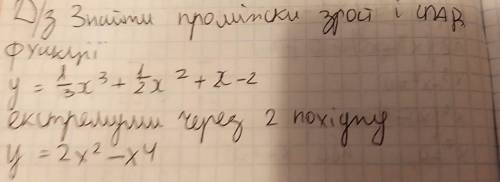 Д/з Знайти проміжски зрост і спад
функції
y = 1/3 x³ + 1/2 x² + x - 2
екстремуми через 2 похідну
y = 2x² - x4